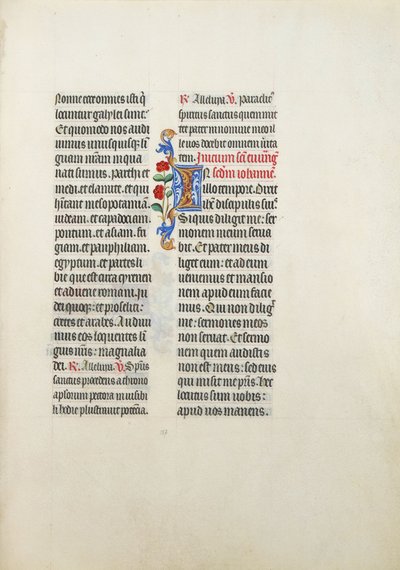 Nonne ecce omnes isti q̃
locuntur galylei sunt:
Et quomodo nos audi
uimus unusquisq; lin
guam nr̃am in qua
nati sumus. parthi et
medi. et elamite. et qui
habitant mesopotamiã
iudeam. et capadociam.
pontum. et asiam. fri
giam. et pamphiliam.
egyptum. et partes li
bie que est circa cyrenen
et aduene romani. Iu
dei quoq;: et proseliti:
cretes et arabes. Audiui
mus eos loquentes li
guis nr̃is: magnalia
dei. ℟. Alleluya. ℣. Sp̃us
sanctus procedens a throno
apl̃orum pectora inuisibi
li hodie penetrauit potẽcia.
℟. Alleluya. ℣. Paraclit9
spiritus sanctus quem mit
tet pater in nomine meo il
le uos docebit omnem uerita
tem. Iniciũ sc̃i euuang̃
scd̃m iohannẽ.
IN illo tempore. Dixit
ih̃s discipulis suis.
Si quis diligit me: ser
monem meum serua
bit. Et pater meus di
liget eum: et ad eum
ueniemus et mansio
nem apud eum facie
mus. Qui non diligit
me: sermones meos
non seruat. Et sermo
nem quem audistis
non est meus: sed eius
qui misit me pr̃is. Hec
locutus sum uobis:
apud uos manens.